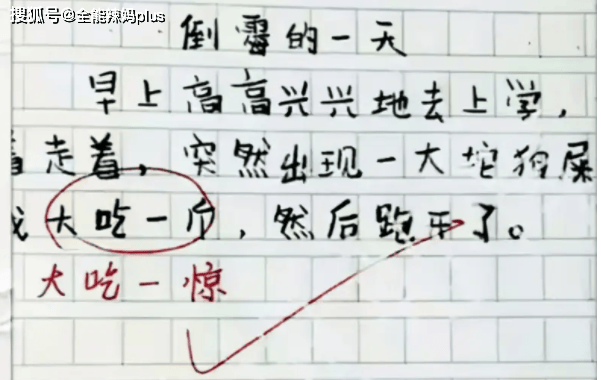 搜狐号@全能辣妈plus
倒霉的一天
早上高高兴兴地去上学，
着走着，突然出现一大坨狗屎
我大吃一斤，然后跑开了。
大吃一惊